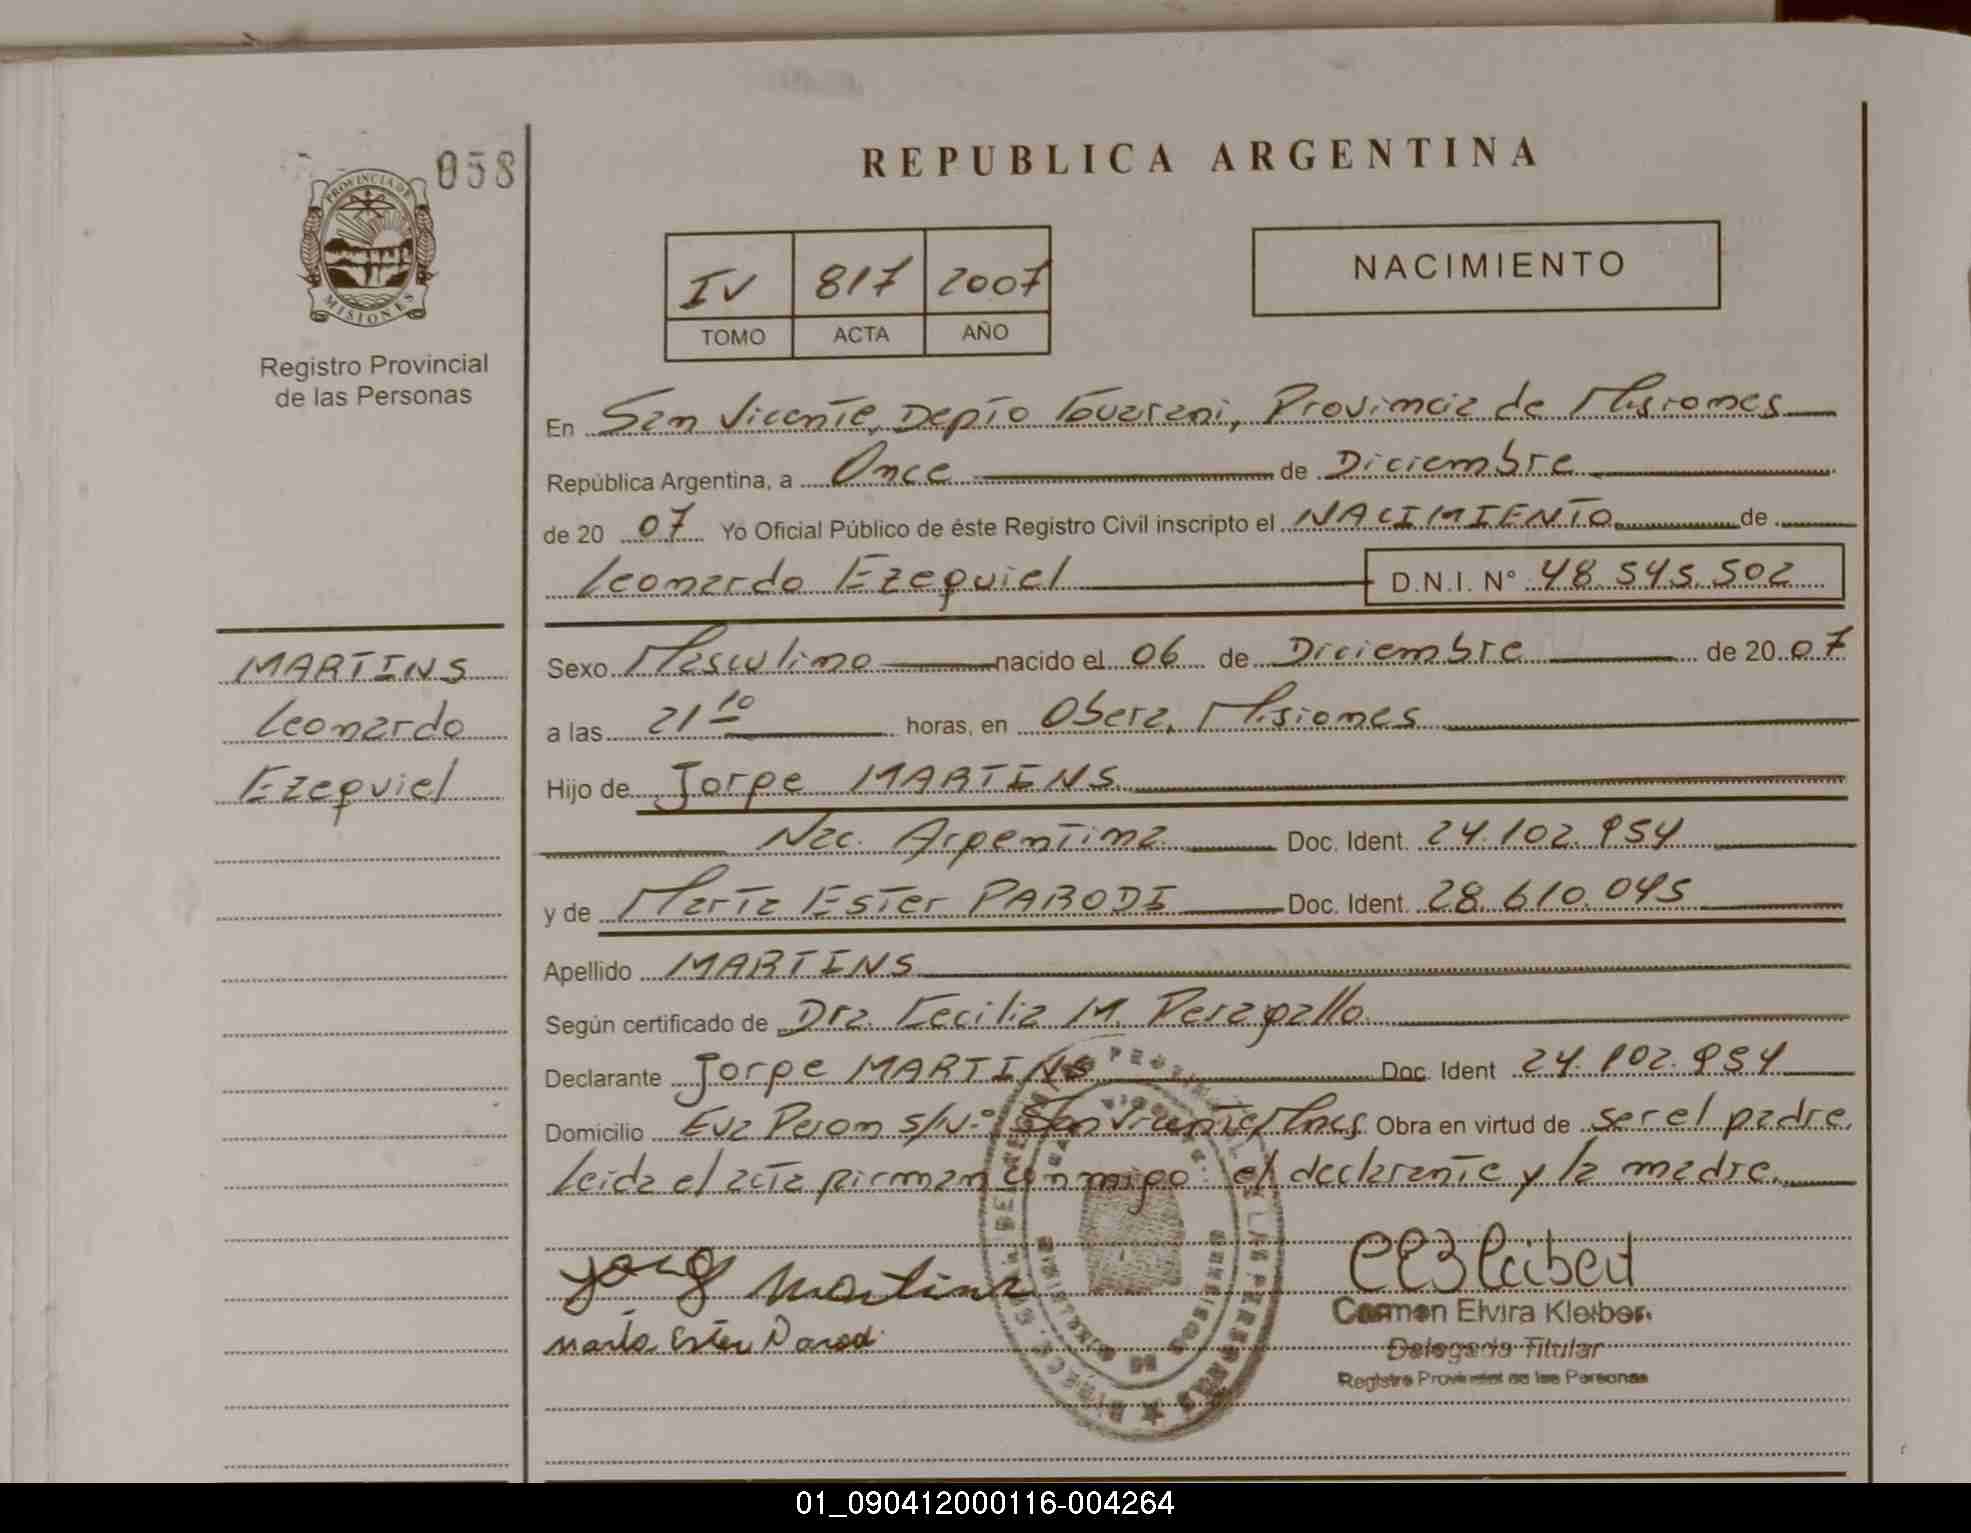 058
PROVINCIA DE
MISIONES
Registro Provincial
de las Personas
REPUBLICA ARGENTINA
IV 817 2007
TOMO ACTA AÑO
NACIMIENTO
En San Vicente, Depto Guarani, Provincia de Misiones
República Argentina, a Once de Diciembre
de 20 07 Yo Oficial Público de éste Registro Civil inscripto el NACIMIENTO de
Leonardo Ezequiel D.N.I. Nº 48.545.502
MARTINS
Leonardo
Ezequiel
Sexo Masculino nacido el 06 de Diciembre de 20 07
a las 21 10 horas, en Obera, Misiones
Hijo de Jorge MARTINS
Nac. Argentina Doc. Ident. 24.102.954
y de María Ester PARODI Doc. Ident. 28.610.045
Apellido MARTINS
Según certificado de Dra. Cecilia M. Peragallo
Declarante Jorge MARTINS Doc. Ident 24.102.954
Domicilio Eva Peron s/N.º San Vicente, Mnes Obra en virtud de ser el padre.
Leida el acta firman conmigo: el declarante y la madre.
Jorge Martins
Maria Ester Parodi
Carmen Elvira Kleiber
Delegada Titular
Registro Provincial de las Personas
01_090412000116-004264